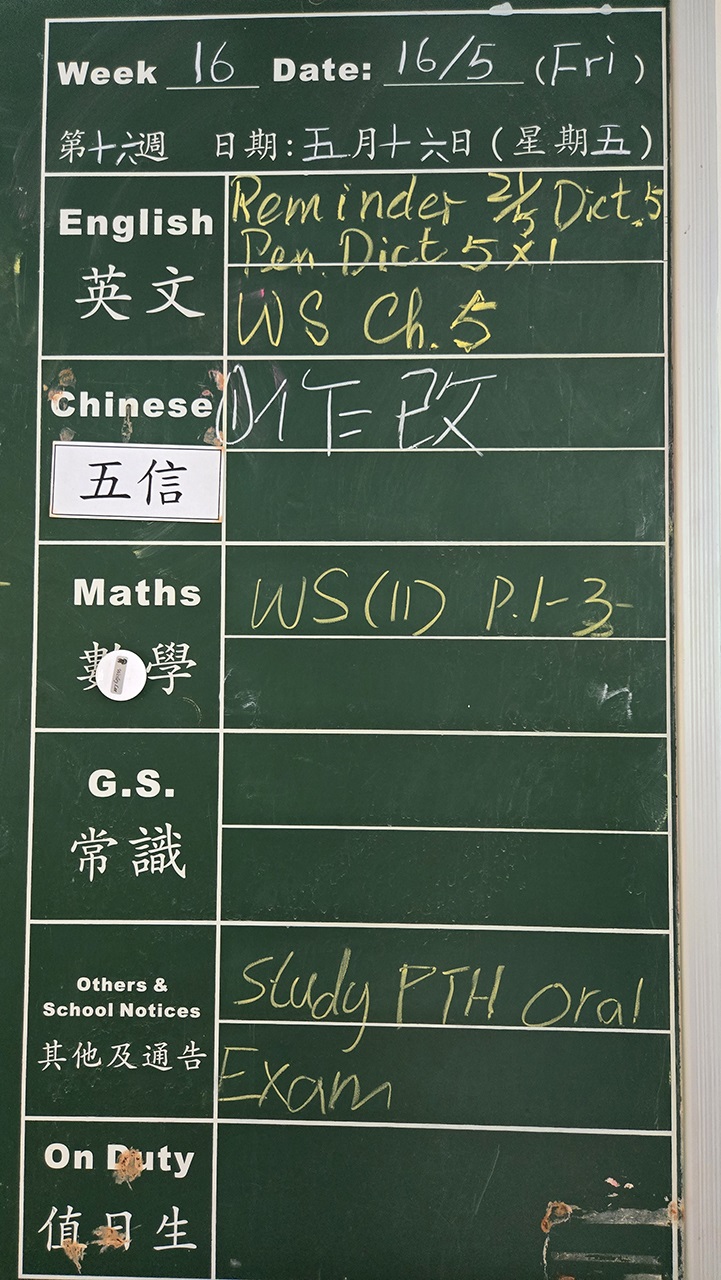 Week 16 Date: 16/5 (Fri)
第十六週 日期:五月十六日(星期五)
English
英文
Reminder 21/5 Dict.5
Pen. Dict 5x1
WS Ch.5
Chinese
(1) 作改
五信
Maths
數學
WS(11) P.1-3
G.S.
常識
Others &
School Notices
其他及通告
Study PTH Oral
Exam
On Duty
值日生